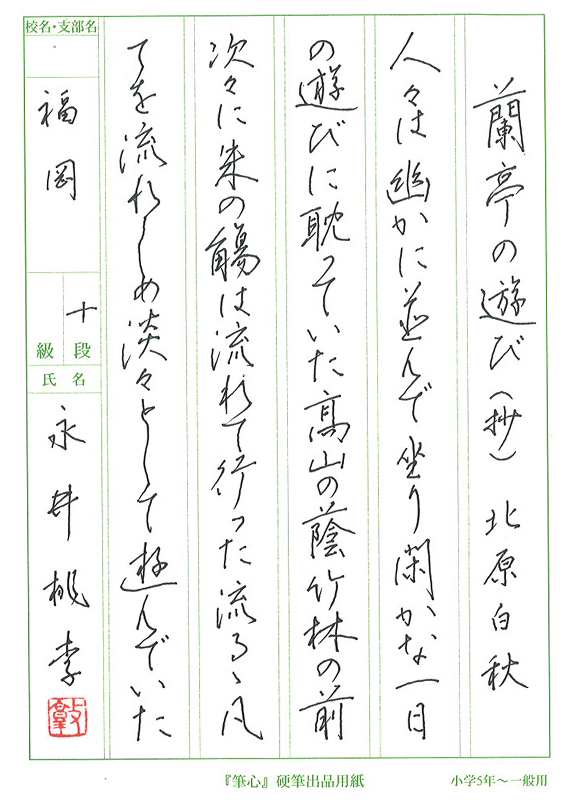 蘭亭の遊び（抄）　北原白秋
人々は幽かに並んで坐り閑かな一日
の遊びに耽っていた高山の蔭竹林の前
次々に朱の觴は流れて行った流るゝ凡
てを流れしめ淡々として遊んでいた
校名・支部名
福岡
十段
級
氏名
永井桃李
『筆心』硬筆出品用紙
小学5年～一般用